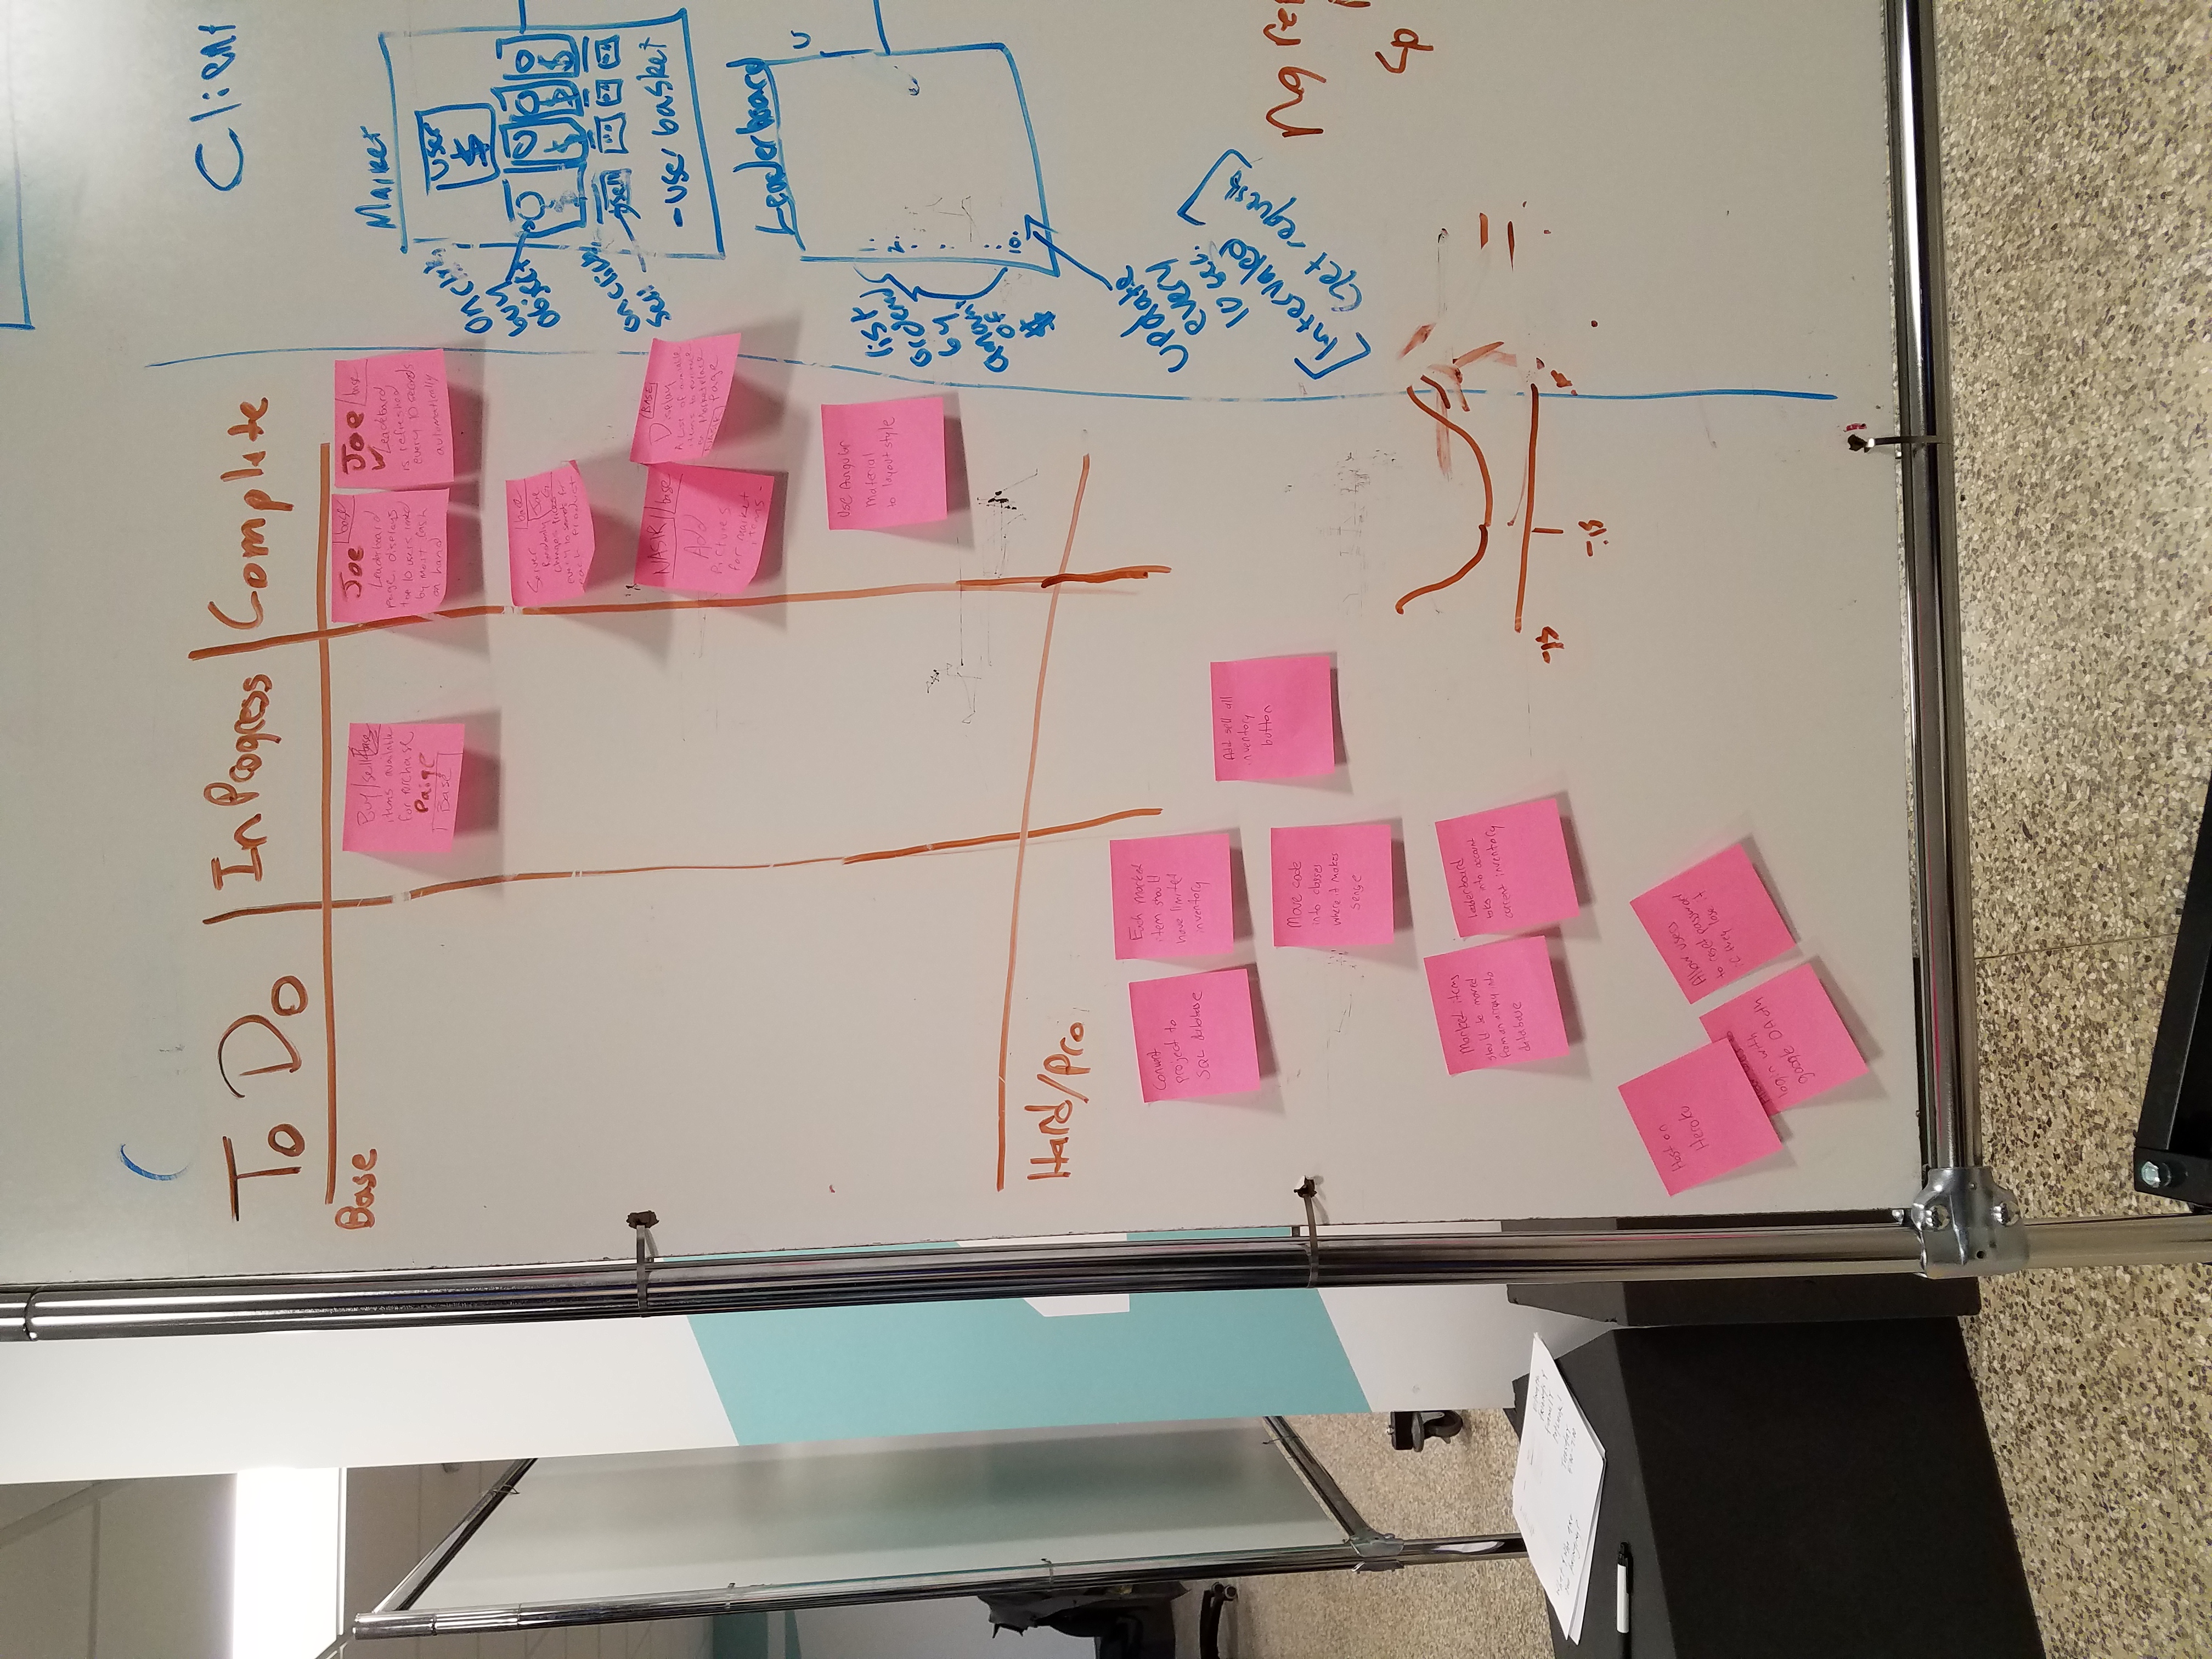 To Do
In Progress
Complete
Base
Buy/sell
base
items available
for purchase
Paige
Base
Joe
base
Leaderboard
page displays
top 10 users
by most cash
on hand
Joe
base
Leaderboard
is refreshed
every 10 seconds
automatically
Server
base
Joe
Randomly
changes prices
every 10 seconds for
each product
NASIR
base
Add
Pictures
for market
items
BASE
Display
A List of available
items to purchase
on Marketplace
NASIR Page
Use Angular
Material
to layout style
Hard/Pro
Convert
project to
SQL database
Each market
item should
have limited
inventory
Add sell all
inventory
button
Move code
into classes
where it makes
sense
Market items
should be moved
from an array into
database
Leaderboard
takes into account
current inventory
Host on
Heroku
login with
google OAuth
Allow users
to reset password
if they lose it
Client
Market
user
$
On click
buy
object
$ $ $
on click
sell
sell
- user basket
Leaderboard
U
list
ordered
by
amount
of
$
1.
2.
10.
update
every
10 sec.
[Intervaled
Get request]
ng rep
So
-.15